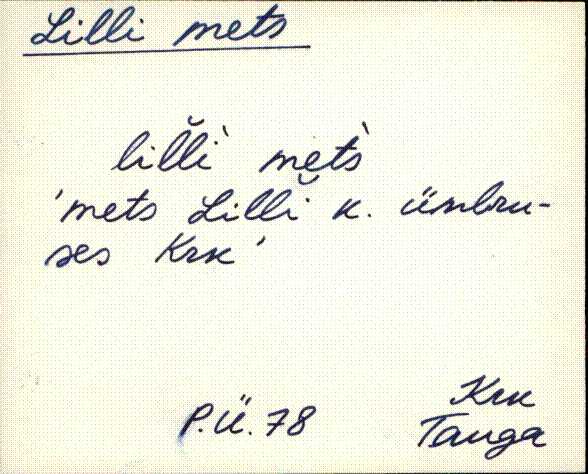 Lilli mets
lil̆l̆i` met`s
'mets Lilli k. ümbru-
ses Krk'
P.Ü.78
Krk
Tauga